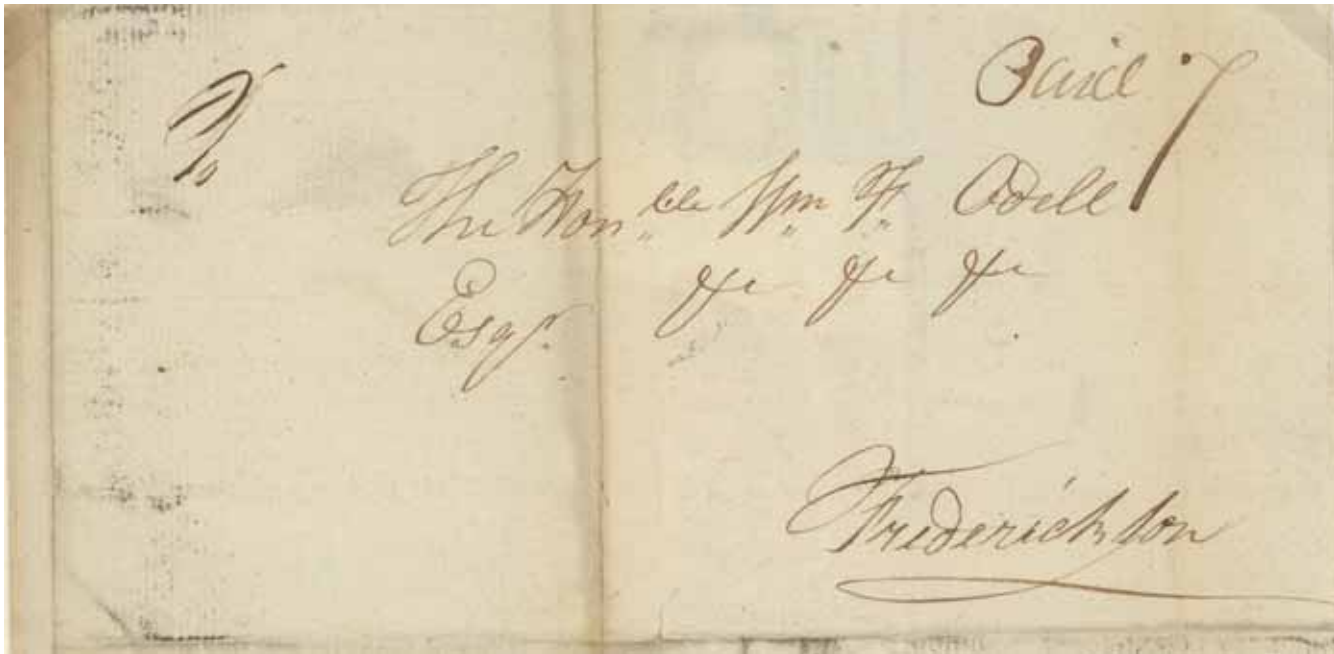 Paid 7
The Hon,,ble Wm F. Odell
Esqr. &c &c &c
Fredericton